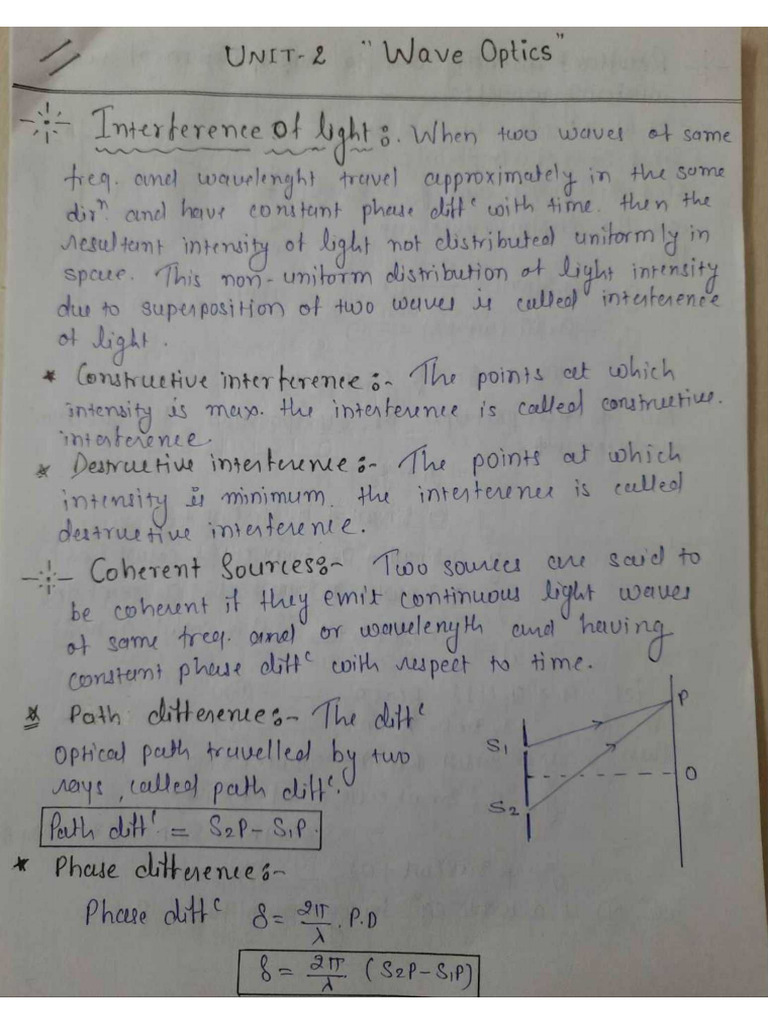 UNIT-2 "Wave Optics"
Interference of light:. When two waves of same
freq. and wavelenght travel approximately in the same
dirⁿ. and have constant phase diffᶜ with time. then the
resultant intensity of light not distributed uniformly in
space. This non-uniform distribution of light intensity
due to superposition of two waves is called interference
of light.
* Constructive interference:- The points at which
intensity is max. the interference is called constructive.
interference.
* Destructive interference:- The points at which
intensity is minimum. the interference is called
destructive interference.
Coherent Sources:- Two sources are said to
be coherent if they emit continuous light waves
of same freq. and or wavelength and having
constant phase diffᶜ with respect to time.
* Path difference:- The diffᶜ
optical path travelled by two
rays, called path diffᶜ.
Path diffᶜ = S₂P - S₁P.
P
S₁
O
S₂
* Phase difference:-
Phase diffᶜ δ = 2π/λ . P.D
δ = 2π/λ (S₂P - S₁P)